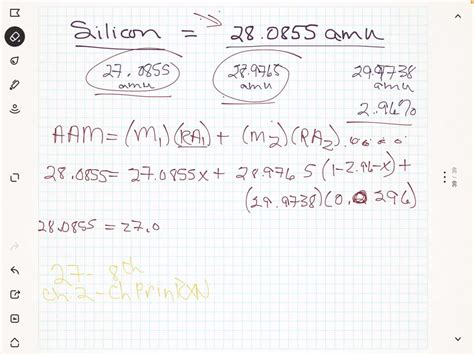 Silicon = 28.0855 amu
27.0855 28.9765 29.9738
amu amu amu
2.96%
AAM = (M1)(RA1) + (M2)(RA2)....
28.0855 = 27.0855x + 28.9765(1-2.96-x) +
(29.9738)(0.0296)
28.0855 = 27.0
27 - 8th
Ch: 2 - Ch Prin RXN